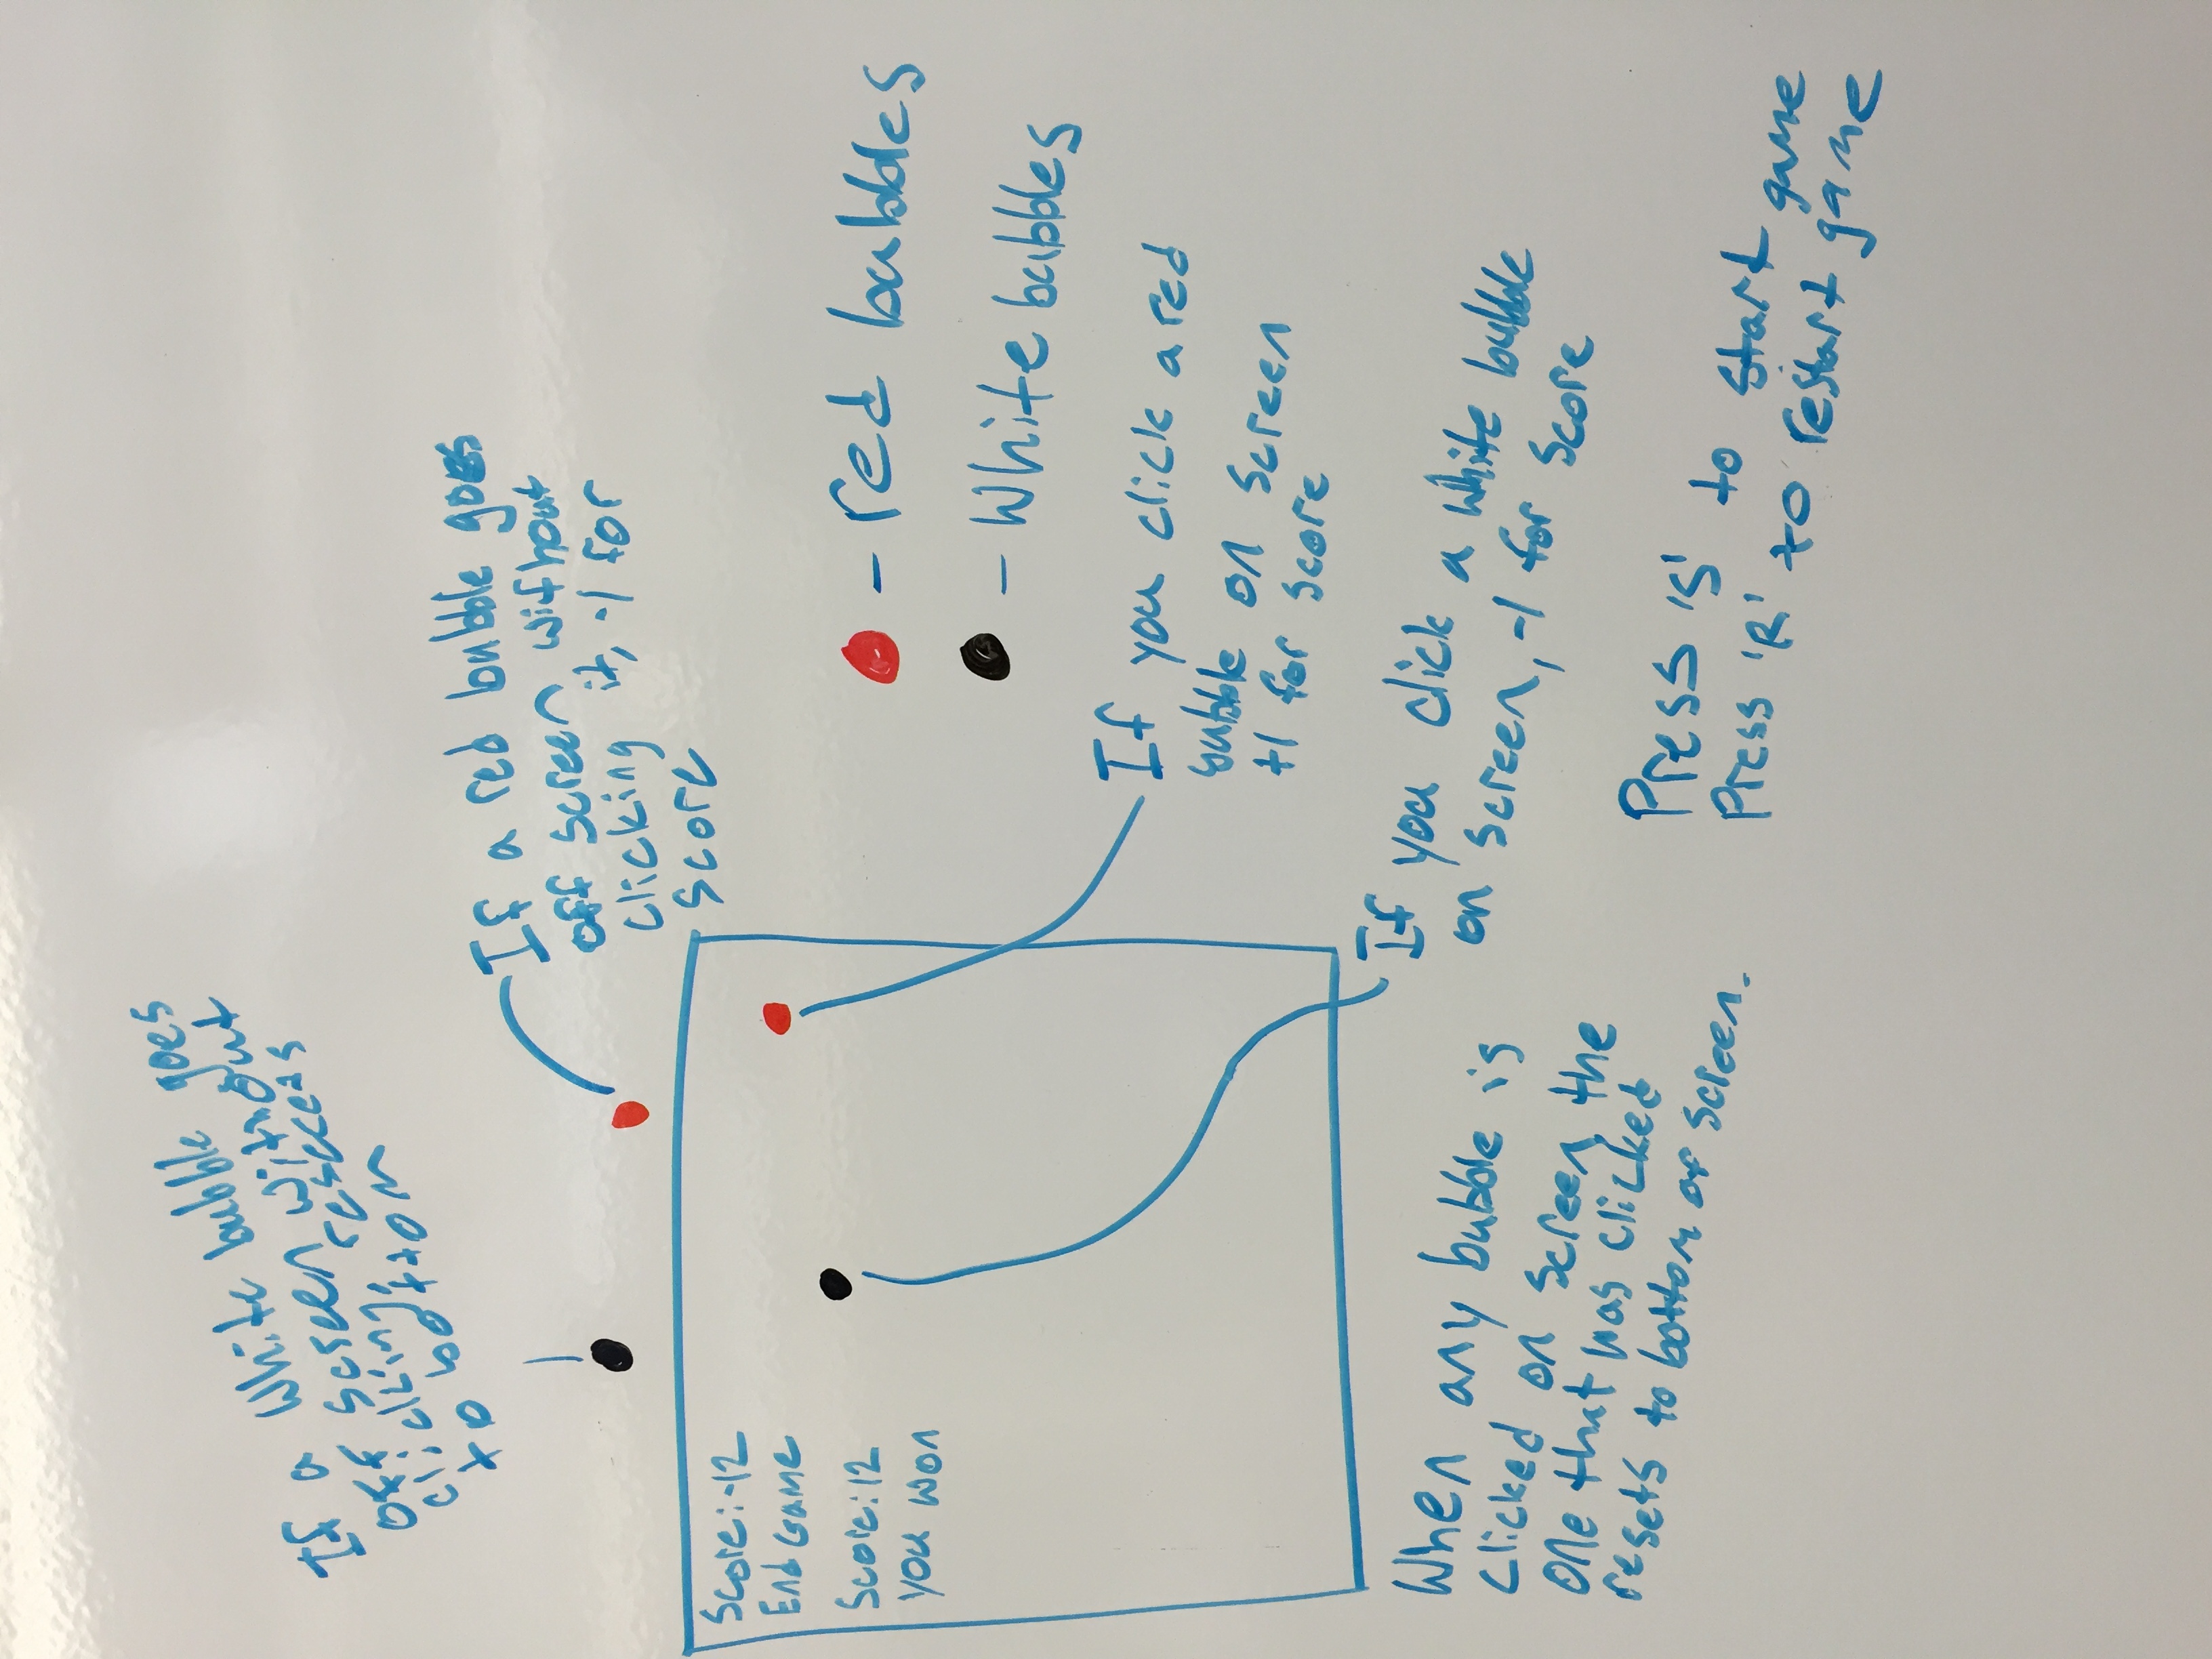 If a White bubble goes
off screen without
clicking,
to bottom
If a red bubble goes
off screen without
clicking it, -1 for
score
Score: -12
End Game
Score: 12
you won
- red bubbles
- White bubbles
If you click a red
bubble on screen
+1 for score
If you click a white bubble
on screen, -1 for score
When any bubble is
clicked on screen, the
one that was clicked
resets to bottom of screen.
Press 'S' to start game
Press 'R' to restart game